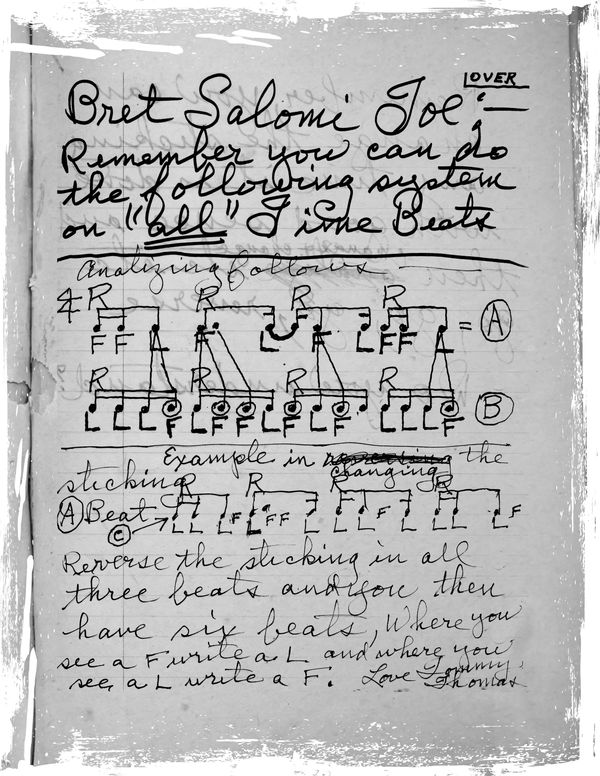 OVER
Bret Salomi Joe:—
Remember you can do
the following system
on "all" Time Beats
Analizing follows
R R R R
F F L F L F L F F L = A
R R R R
L L L F L F F L F L F L L L L F B
Example in changing the
sticking R R R R
A Beat L L F L F F L L F L L L L F
C
Reverse the sticking in all
three beats and you then
have six beats, Where you
see a F write a L and where you
see a L write a F. Love Tommy
Thomas